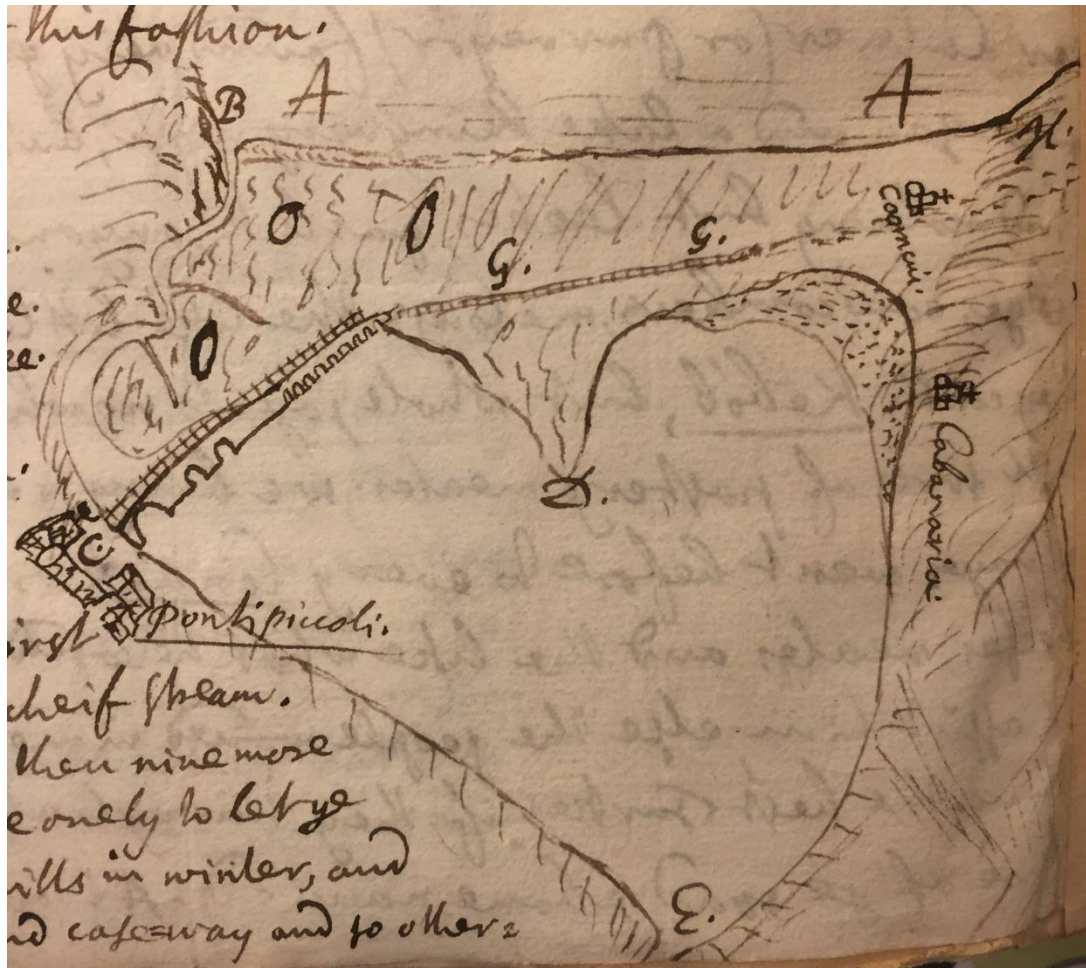 this fashion.
B A A
H.
Cogniciri.
G. G.
e.
ee.
Cabanaria.
D.
C
Pontipiccoli.
irst
cheif stream.
then nine more
e onely to let ye
ills in winter, and
E.
nd case-way and to other=